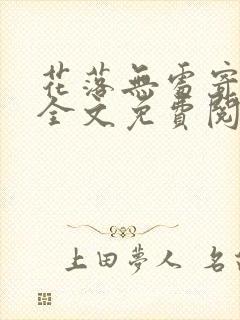 花落無雷寄
全文免費閱
上田夢人 名